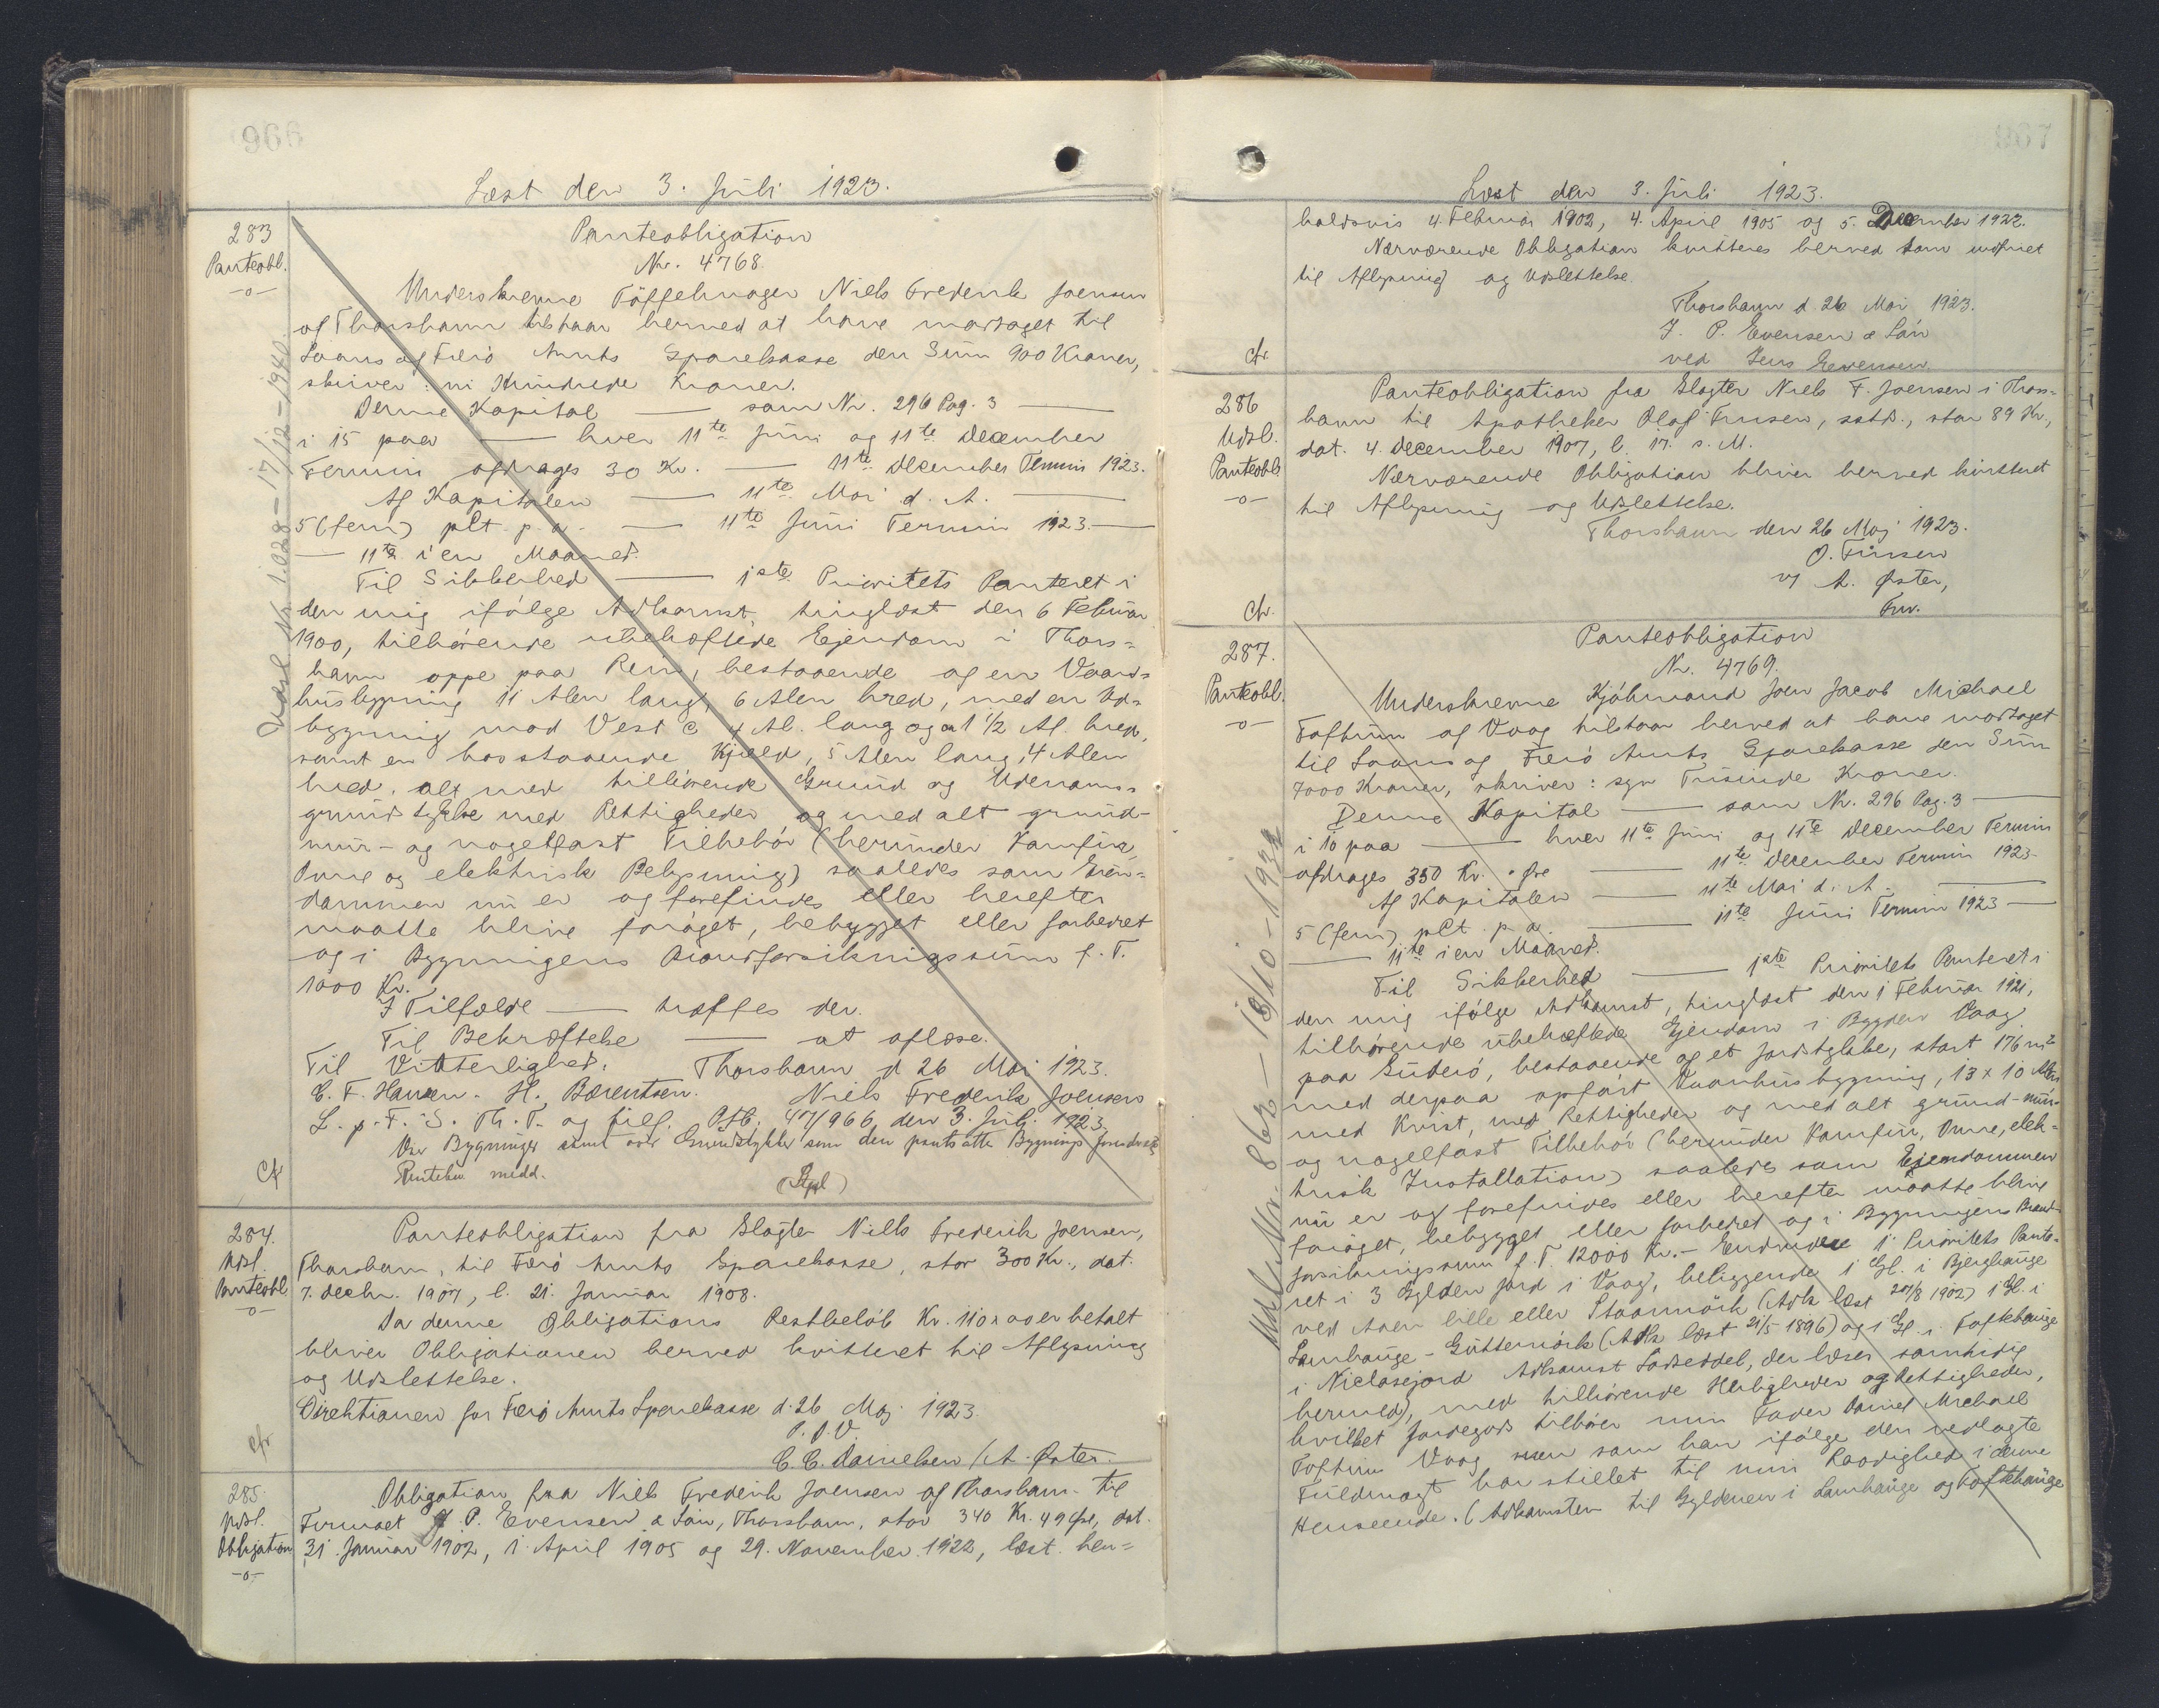 966
Læst den 3. Juli 1923.
283
Panteobl.
-o-
Panteobligation
Nr. 4768.
Underskrevne Töffelmager Niels Frederik Joensen
af Thorshavn tilstaar herved at have modtaget til
Laans af Færö Amts Sparekasse den Sum 900 Kroner,
skriver: ni Hundrede Kroner.
Denne Kapital — som Nr. 296 Pag. 3 —
i 15 paa — hver 11te Juni og 11te December
Termin afdrages 30 Kr. — 11te December Termin 1923.
Af Kapitalen — 11te Mai d. A. —
5 (fem) pCt. p. a. — 11te Juni Termin 1923. —
— 11te i en Maaned.
Til Sikkerhed — 1ste Prioritets Panteret i
den mig ifölge Adkomst, tinglæst den 6 Februar
1900, tilhörende ubehæftede Ejendom i Thors=
havn oppe paa Rein, bestaaende af en Vaand=
husbygning 11 Alen lang, 6 Alen bred, med en Ud=
bygning mod Vest c 4 Al. lang og a 1 1/2 Al. bred,
samt en hosstaaende Kjæld, 5 Alen lang, 4 Alen
bred, alt med tilhörende Grund og Udenoms=
grundstykke med Rettigheder og med alt grund-
mur- og nagelfast Tilbehör (herunder Komfur,
Ovne og elektrisk Belysning) saaledes som Eien=
dommen nu er og forefindes eller herefter
maatte blive foröget, bebygget eller forbedret
og i Bygningens Brandforsikringssum f. T.
1000 Kr.
I Tilfælde — træffes der.
Til Bekræftelse — at aflæse.
Til Vitterlighed. Thorshavn d 26 Mai 1923.
C. F. Hansen. H. Bærentsen. Niels Frederik Joensen
L. p. F. S. Th. T. og tilf. Pfb. 47/966 den 3. Juli 1923
Var Bygninger samt over Grundstykket som den pantsatte Bygnings
Pantebr. medd.
Cfr
Udsl Nr. 1.028 - 17/12 - 1940.
284.
Udsl.
Panteobl
-o-
Panteobligation fra Slagter Niels Frederik Joensen,
Thorshavn, til Færö Amts Sparekasse, stor 300 Kr., dat.
7. decbr. 1907, l. 21. Januar 1908.
Da denne Obligations Restbelöb Kr. 110 x 00 er betalt
bliver Obligationen herved kvitteret til Aflysning
og Udslettelse.
Direktionen for Færö Amts Sparekasse d. 26 Maj 1923.
P. D. V.
C. C. Danielsen / A. Øster.
cfr
285.
Udsl.
Obligation
-o-
Obligation fra Niels Frederik Joensen af Thorshavn til
Firmaet J. P. Evensen & Sön, Thorshavn, stor 340 Kr. 49 Öre, dat.
31. Januar 1902, 1. April 1905 og 29. November 1922, læst hen=
967
Læst den 3. Juli 1923.
holdsvis 4. Februar 1902, 4. April 1905 og 5. December 1922.
Nærværende Obligation kvitteres herved som indfriet
til Aflysning og Udslettelse.
Thorshavn d. 26 Mai 1923.
J. P. Evensen & Sön
ved Jens Evensen.
cfr.
286
Udsl.
Panteobl
-o-
Panteobligation fra Slagter Niels F. Joensen i Thors-
havn til Apotheker Olaf Finsen, sstd., stor 89 Kr.,
dat. 4. December 1907, l. 17. s. M.
Nærværende Obligation bliver herved kvitteret
til Aflysning og Udslettelse.
Thorshavn den 26 Maj 1923.
O. Finsen
v/ A. Øster,
cfr.
287.
Panteobl.
-o-
Panteobligation
Nr. 4769.
Underskrevne Kjöbmand Joen Jacob Michael
Toftum af Vaag tilstaar herved at have modtaget
til Laans af Færö Amts Sparekasse den Sum
7000 Kroner, skriver: syv Tusinde Kroner.
Denne Kapital — som Nr. 296 Pag. 3 —
i 10 paa — hver 11te Juni og 11te December Termin
afdrages 350 Kr. " Öre — 11te December Termin 1923
Af Kapitalen — 11te Mai d. A. —
5 (fem) pCt p. a. — 11te Juni Termin 1923 —
— 11te i en Maaned.
Til Sikkerhed — 1ste Prioritets Panteret i
den mig ifölge Adkomst, tinglæst den 1 Februar 1921,
tilhörende ubehæftede Ejendom i Bygden Vaag
paa Suderö, bestaaende af et Jordstykke, stort 176 m²
med derpaa opfört Vaanhusbygning, 13 x 10 Alen
med Kvist, med Rettigheder og med alt grund-mur-
og nagelfast Tilbehör (herunder Komfur, Ovne, elek-
trisk Installation) saaledes som Ejendommen
nu er og forefindes eller herefter maatte blive
foröget, bebygget eller forbedret og i Bygningens Brand-
forsikringssum f. T. 12000 Kr. - Endvidere 1' Prioritets Pante-
ret i 3 Gylden Jord i Vaag, beliggende 1 Gl. i Bjerghauge
ved Aaen lille eller Staamörk (Adk læst 20/8 1902) 1 Gl. i
Lamhauge - Guttemörk (Adk læst 21/5 1896) og 1 Gl. i Toftehauge
i Niclasejord Adkomst Lodseddel, der læses samtidig
hermed), med tilhörende Herligheder og Rettigheder,
hvilket Jordegods tilhörer min Fader Daniel Michael
Toftum Vaag men som han ifölge den vedlagte
Fuldmagt har stillet til min Raadighed i denne
Henseende. (Adkomsten til Gyldenen i Lamhauge og Toftehauge